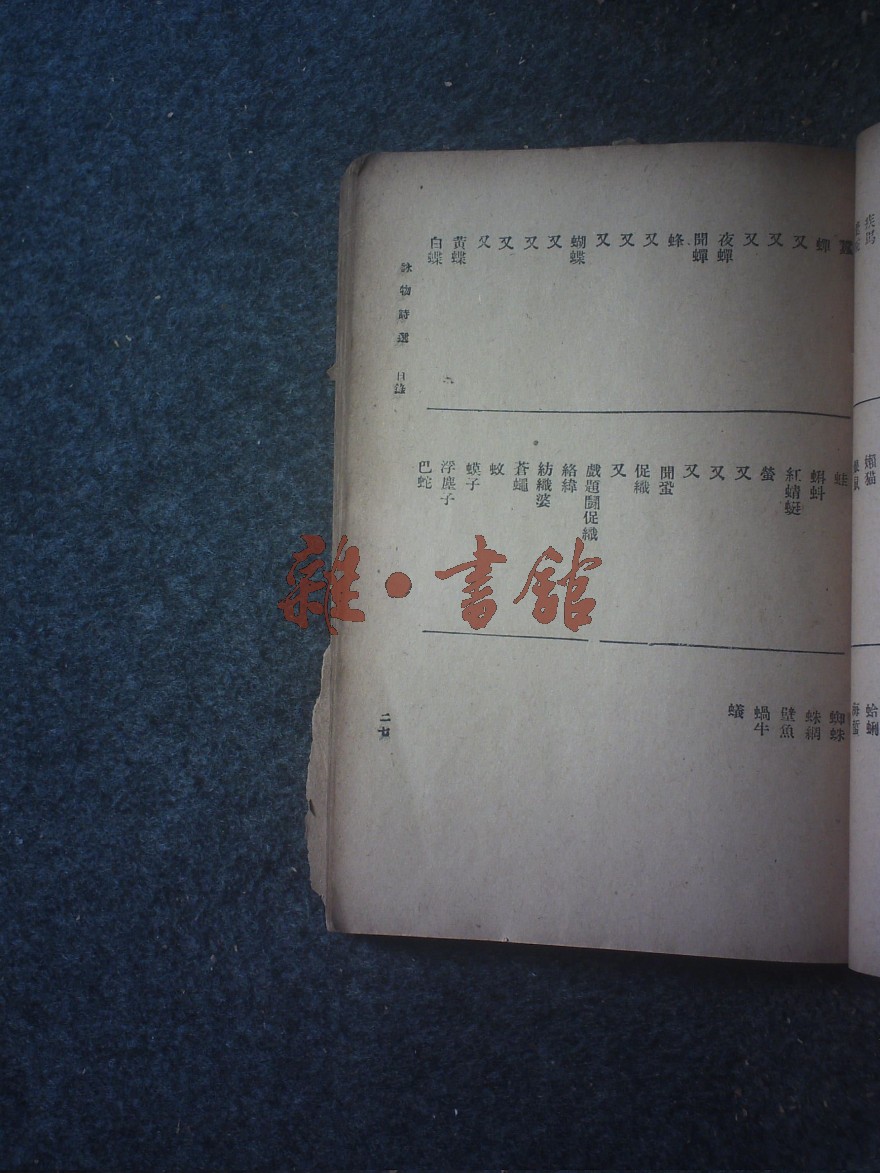 蟬
又
又
又
夜蟬
聞蟬
蜂
又
又
又
蝴蝶
又
又
又
又
黃蝶
白蝶
蛙
蝌蚪
紅蜻蜓
螢
又
又
又
聞蛩
促織
又
戲題鬬促織
絡緯
紡織婆
蒼蠅
蚊
蟆子
浮塵子
巴蛇
蜘蛛
蛛網
壁魚
蝸牛
蟻
詠物詩選 目錄
二七
懶貓
蛤蜊
雜·書館